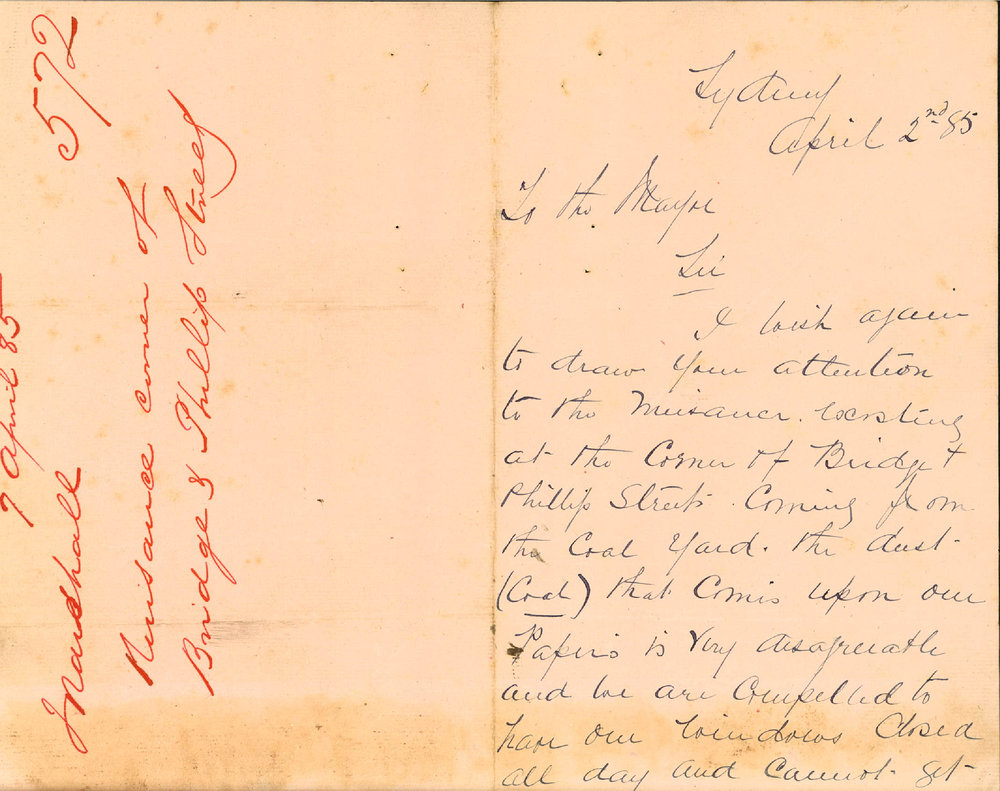 572
7 April 85
J Marshall
Nuisance corner of
Bridge & Phillip Streets
Sydney
April 2nd 85
To the Mayor
Sir
I wish again
to draw your attention
to the Nuisance existing
at the Corner of Bridge +
Phillip Streets. Coming from
the Coal Yard. the dust
(Coal) that Comes upon our
Papers is very disagreeable
and we are Compelled to
have our windows Closed
all day and Cannot get